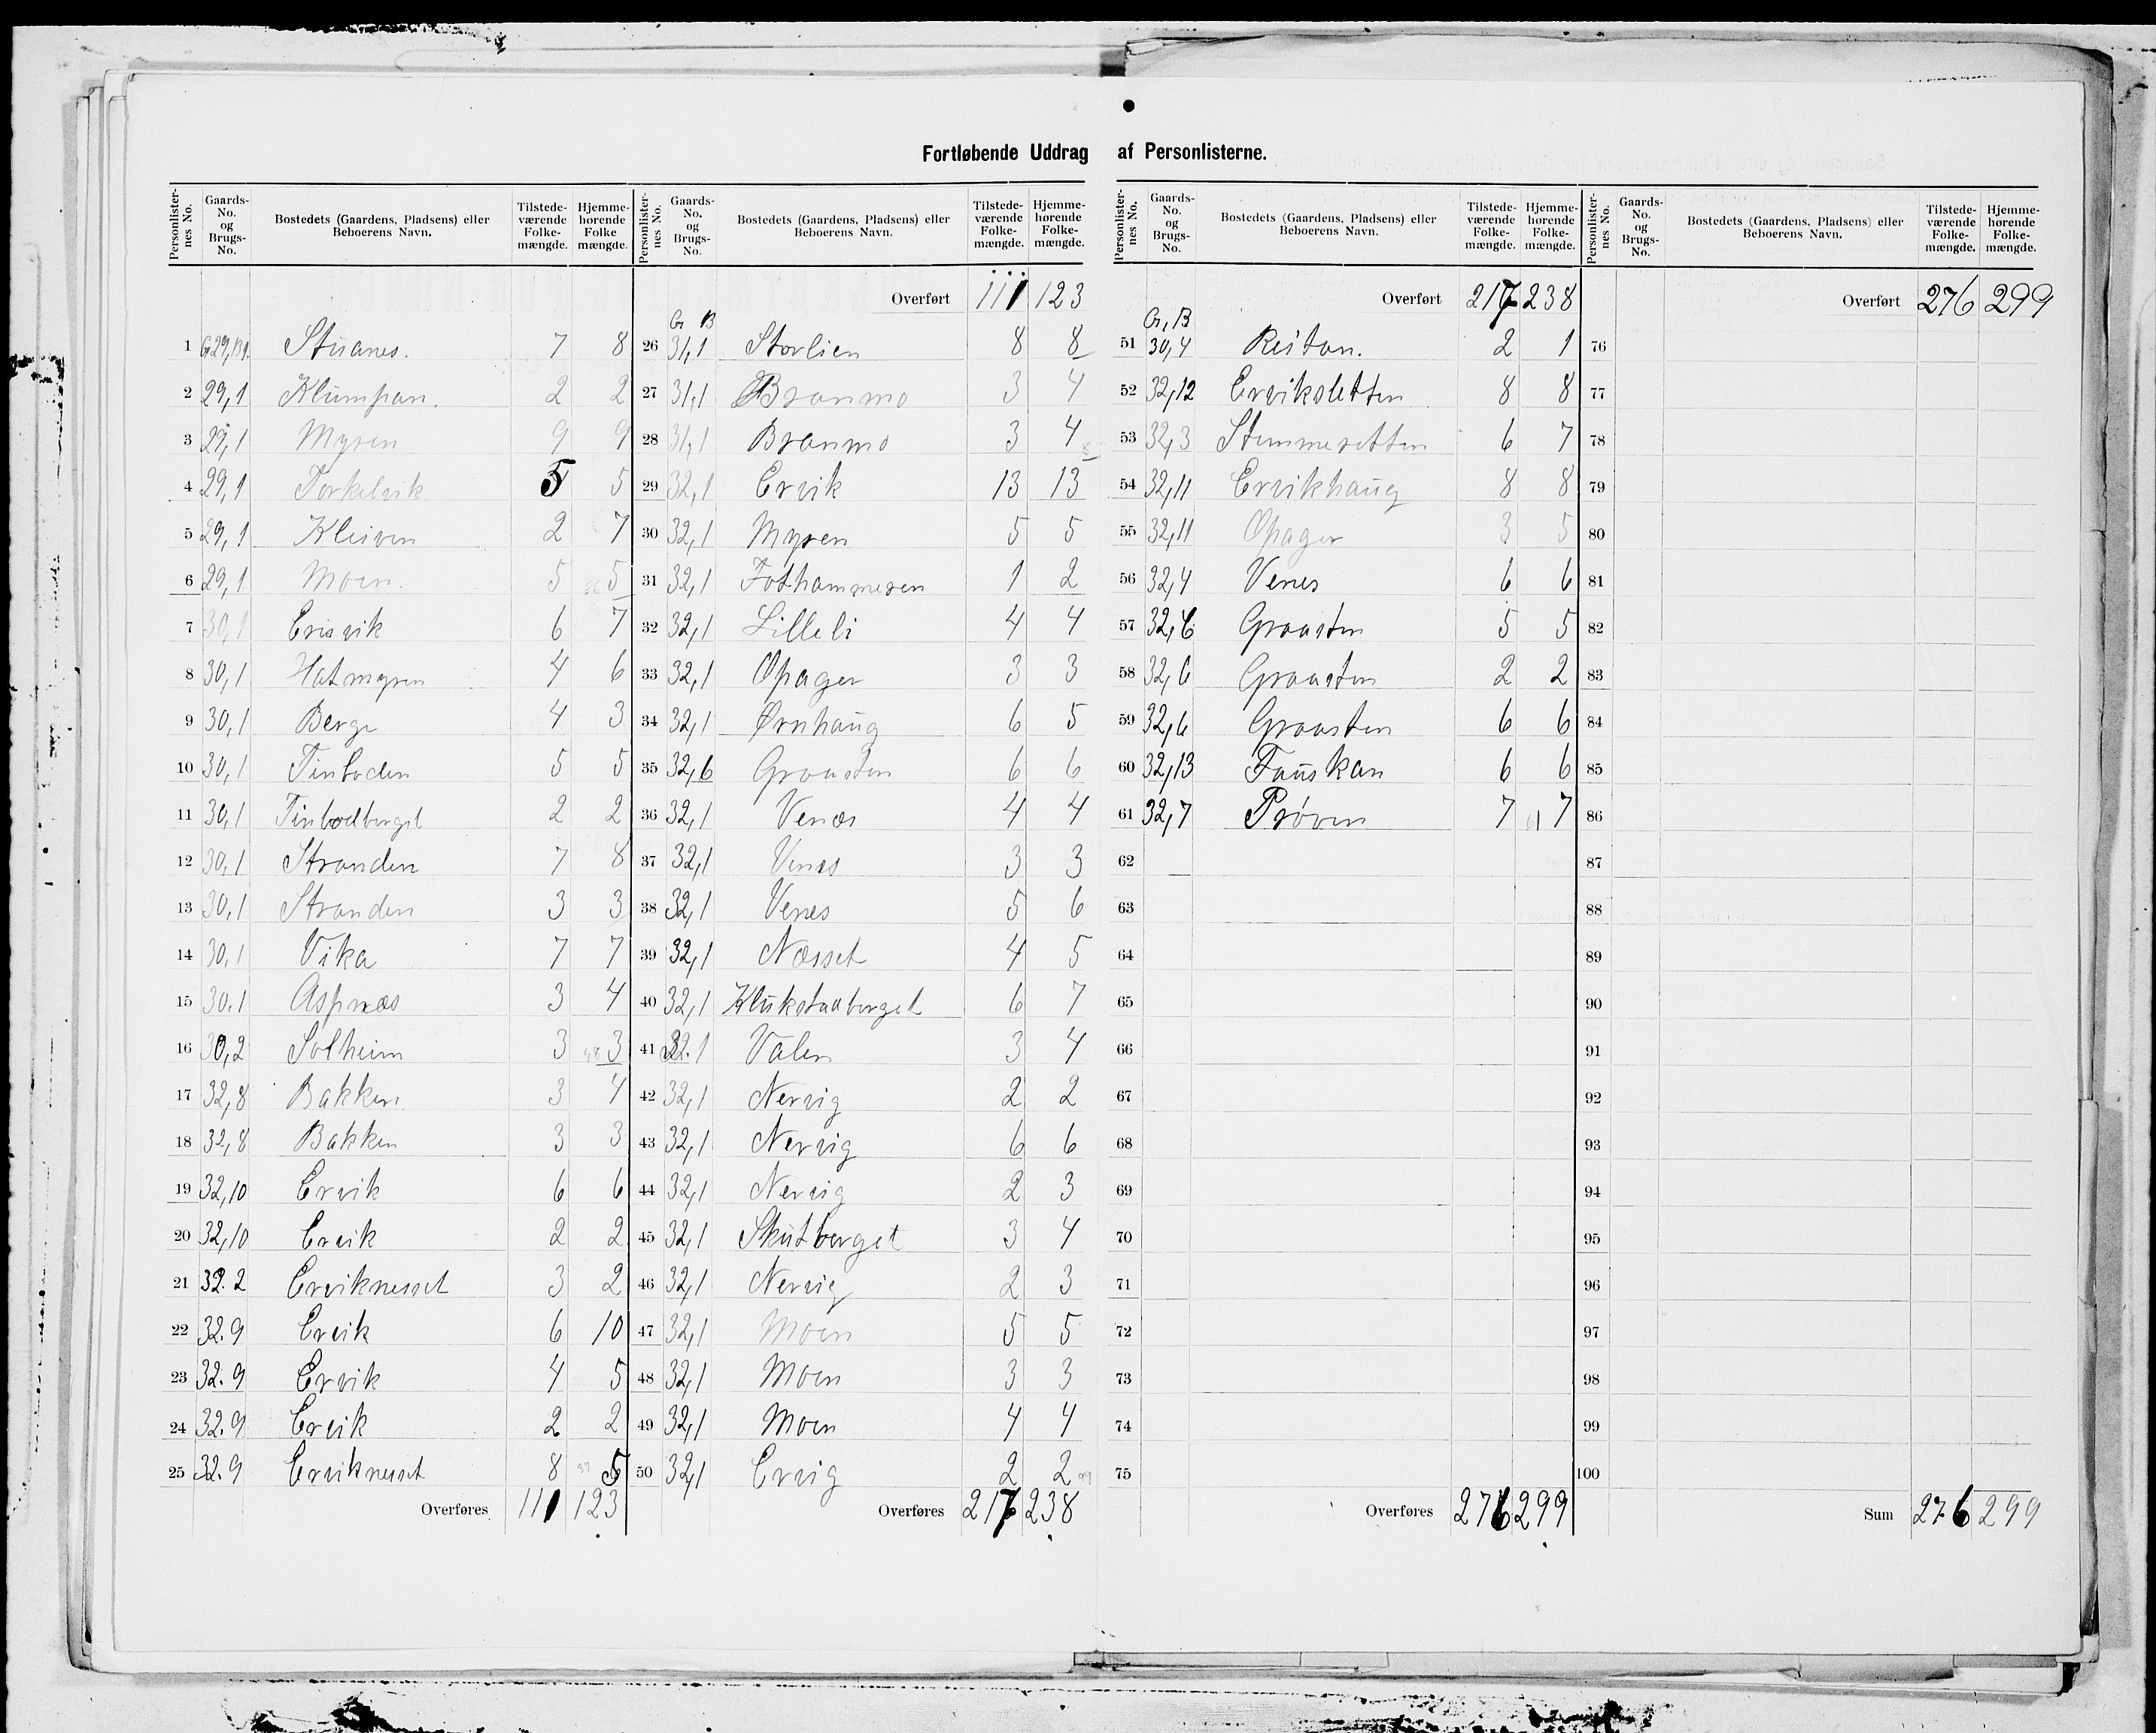 Fortløbende Uddrag af Personlisterne.
Personlister-nes No. | Gaards-No. og Brugs-No. | Bostedets (Gaardens, Pladsens) eller Beboerens Navn. | Tilstede-værende Folke-mængde. | Hjemme-hørende Folke mængde.
1 G29,B1. Stuanes. 7 8
2 29,1 Klumpan. 2 2
3 29,1 Myren 9 9
4 29,1 Torkelvik 5 5
5 29,1 Kleiven 2 7
6 29,1 Moen. 5 36 5
7 30,1 Erisvik 6 7
8 30,1 Hatmyren 4 6
9 30,1 Berge 4 3
10 30,1 Tinboden 5 5
11 30,1 Tinbodberget 2 2
12 30,1 Stranden 7 8
13 30,1 Stranden 3 3
14 30,1 Vika 7 7
15 30.1 Aspnæs 3 4
16 30,2 Solheim 3 48 3
17 32,8 Bakken 3 4
18 32,8 Bakken 3 3
19 32,10 Ervik 6 6
20 32,10 Ervik 2 2
21 32.2 Erviknesset 3 2
22 32.9 Ervik 6 10
23 32.9 Ervik 4 5
24 32.9 Ervik 2 2
25 32.9 Erviknesset 8 39 5
Overføres 111 123
Personlister-nes No. | Gaards-No. og Brugs-No. | Bostedets (Gaardens, Pladsens) eller Beboerens Navn. | Tilstede-værende Folke-mængde. | Hjemme-hørende Folke-mængde.
Overført 111 123
G B
26 31,1 Storlien 8 8
27 31,1 Branmo 3 4
28 31,1 Branmo 3 4
29 32,1 Ervik 13 13
30 32,1 Myren 5 5
31 32,1 Fothammeren 1 2
32 32,1 Lilleli 4 4
33 32,1 Opager 3 3
34 32,1 Ørnhaug 6 5
35 32,6 Graasten 6 6
36 32,1 Venæs 4 4
37 32,1 Venes 3 3
38 32,1 Venes 5 6
39 32,1 Næsset 4 5
40 32,1 Klukstadberget 6 7
41 32.1 Valen 3 4
42 32,1 Nervig 2 2
43 32,1 Nervig 6 6
44 32,1 Nervig 2 3
45 32,1 Skutberget 3 4
46 32,1 Nervig 2 3
47 32,1 Moen 5 5
48 32,1 Moen 3 3
49 32,1 Moen 4 4
50 32,1 Ervig 2 2
Overføres 217 238
Personlister-nes No. | Gaards-No. og Brugs-No. | Bostedets (Gaardens, Pladsens) eller Beboerens Navn. | Tilstede-værende Folke-mængde. | Hjemme-hørende Folke-mængde.
Overført 217 238
G, B
51 30,4 Reitan. 2 1
52 32,12 Erviksletten 8 8
53 32,3 Stemmesetten 6 7
54 32,11 Ervikhaug 8 8
55 32,11 Opager 3 5
56 32,4 Venes 6 6
57 32,6 Graasten 5 5
58 32,6 Graasten 2 2
59 32,6 Graasten 6 6
60 32,13 Fauskan 6 6
61 32,7 Prøven 7 61 7
62
63
64
65
66
67
68
69
70
71
72
73
74
75
Overføres 276 299
Personlister-nes No. | Gaards-No. og Brugs-No. | Bostedets (Gaardens, Pladsens) eller Beboerens Navn. | Tilstede-værende Folke-mængde. | Hjemme-hørende Folke-mængde.
Overført 276 299
76
77
78
79
80
81
82
83
84
85
86
87
88
89
90
91
92
93
94
95
96
97
98
99
100
Sum 276 299